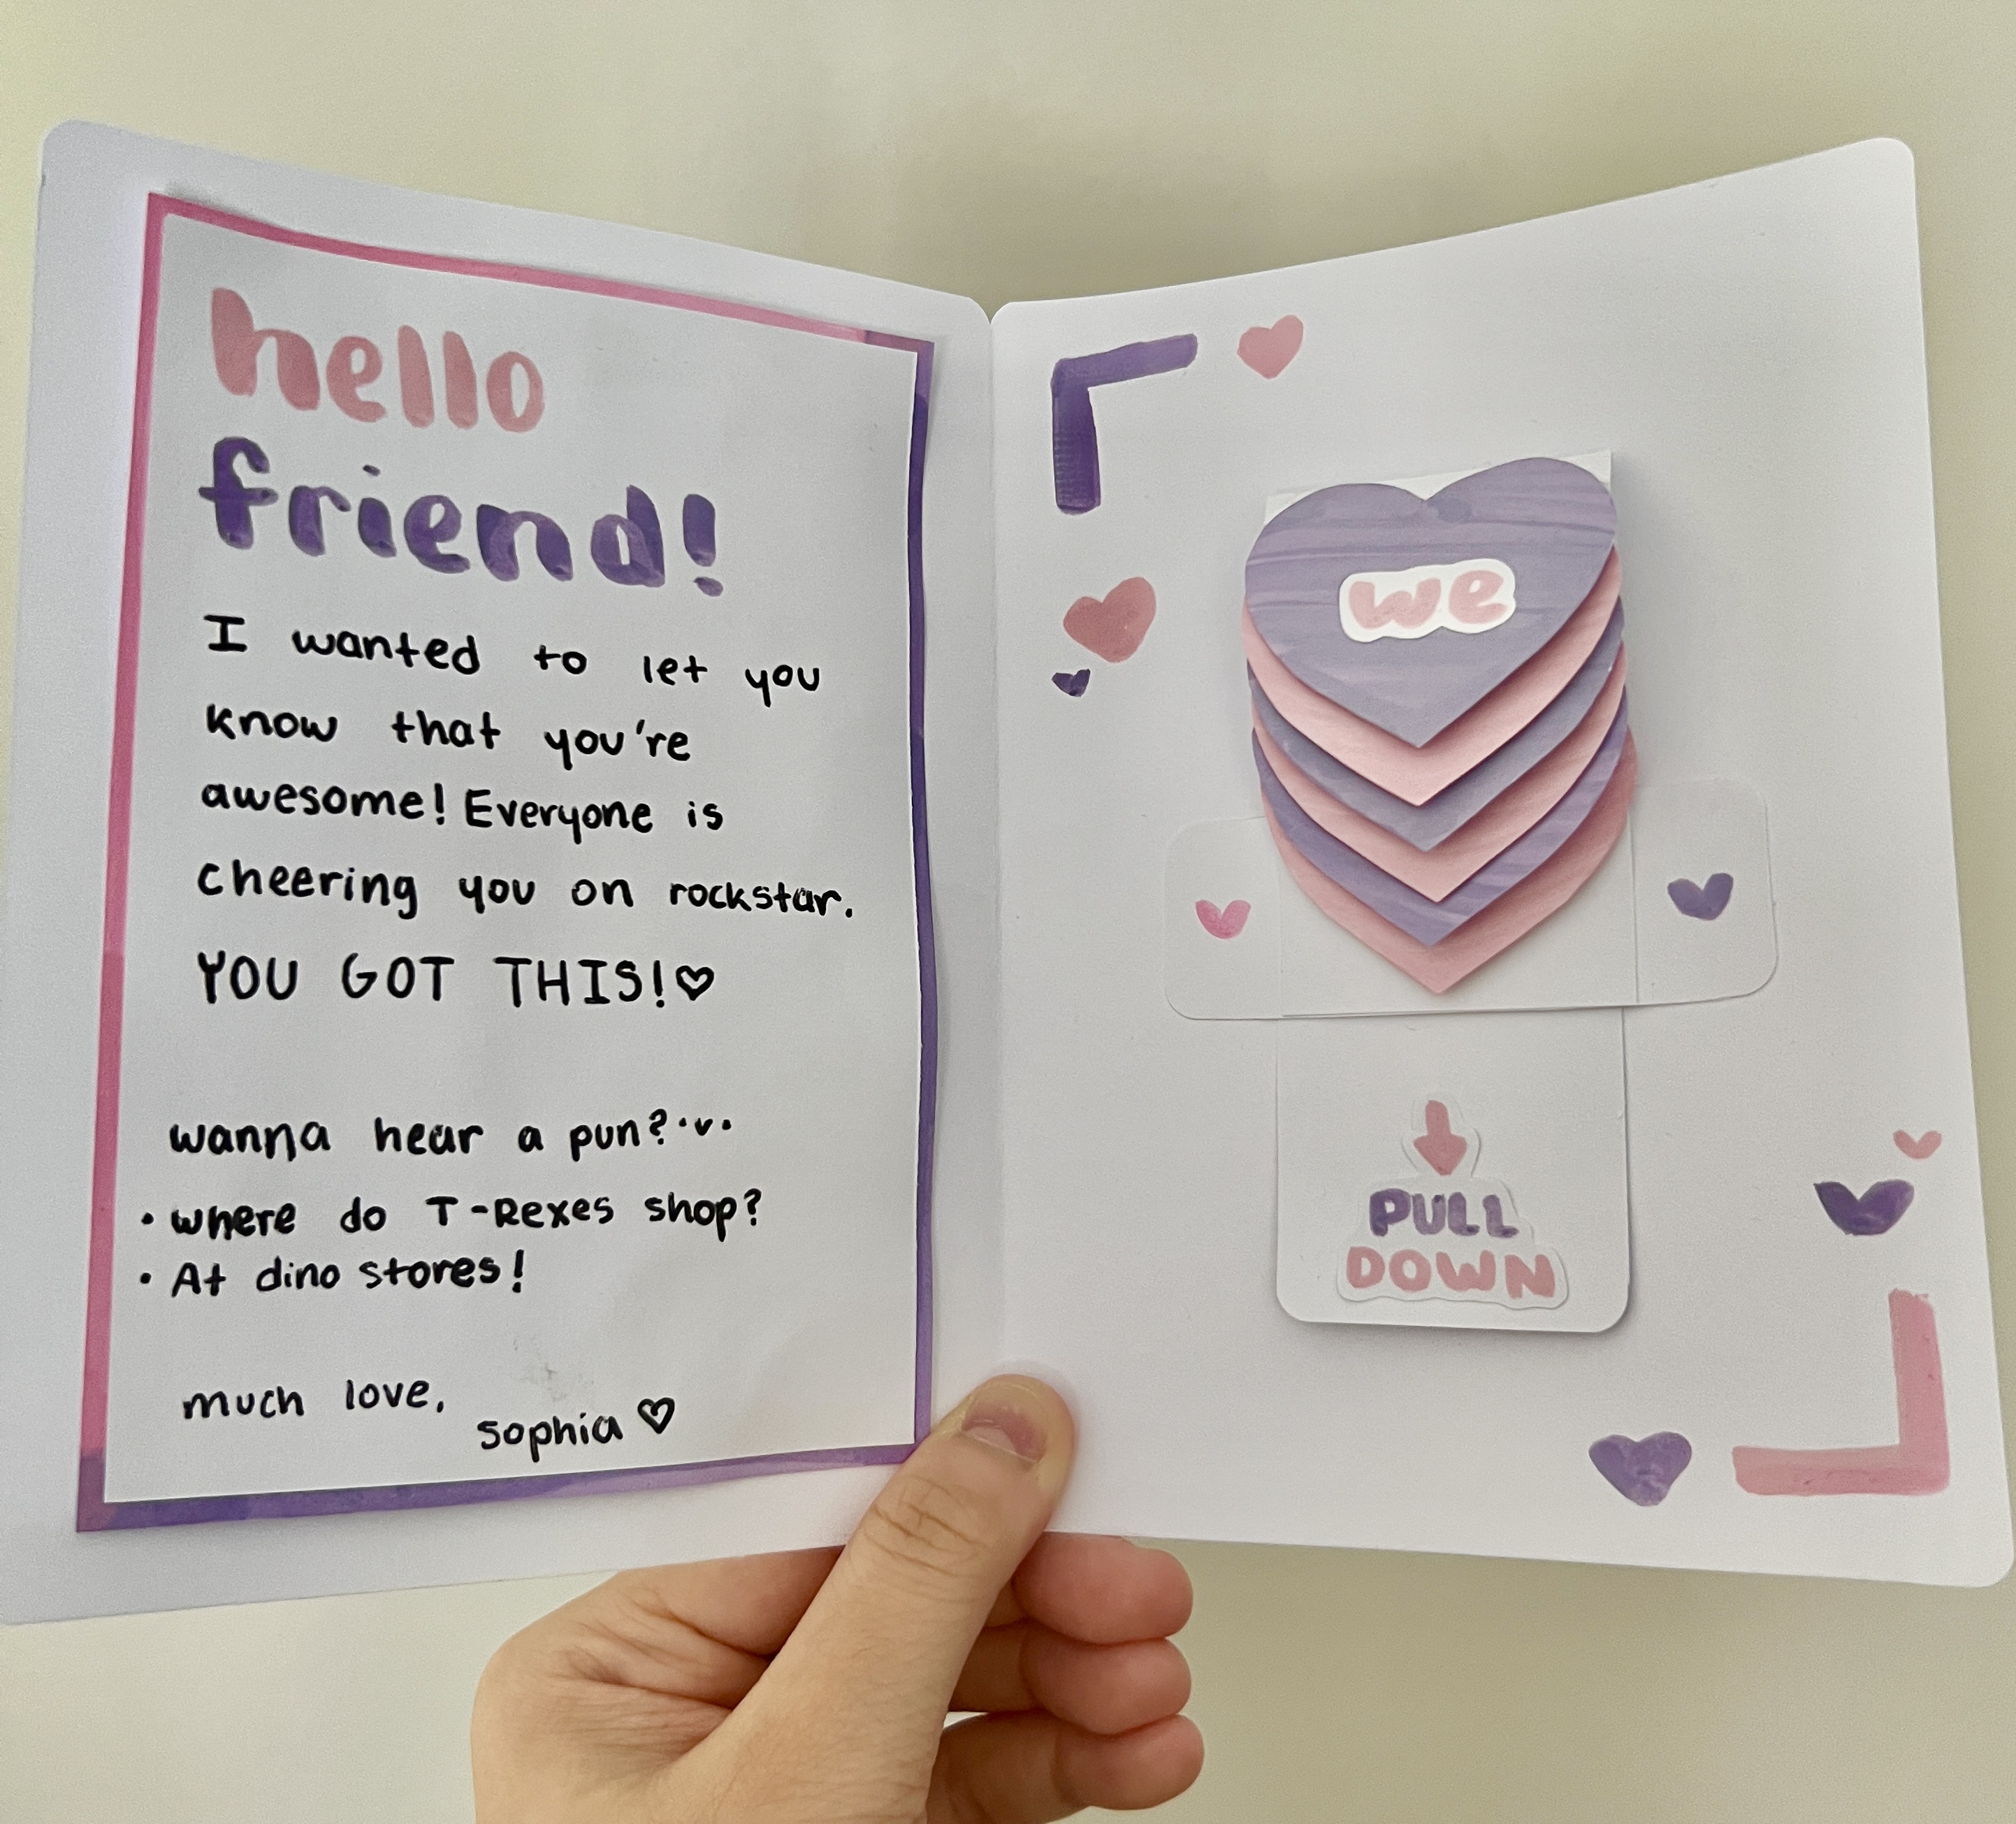 hello
friend!
I wanted to let you
know that you're
awesome! Everyone is
cheering you on rockstar.
YOU GOT THIS!♡
wanna hear a pun? ·v·
• where do T-Rexes shop?
• At dino stores!
much love,
sophia ♡
we
PULL
DOWN